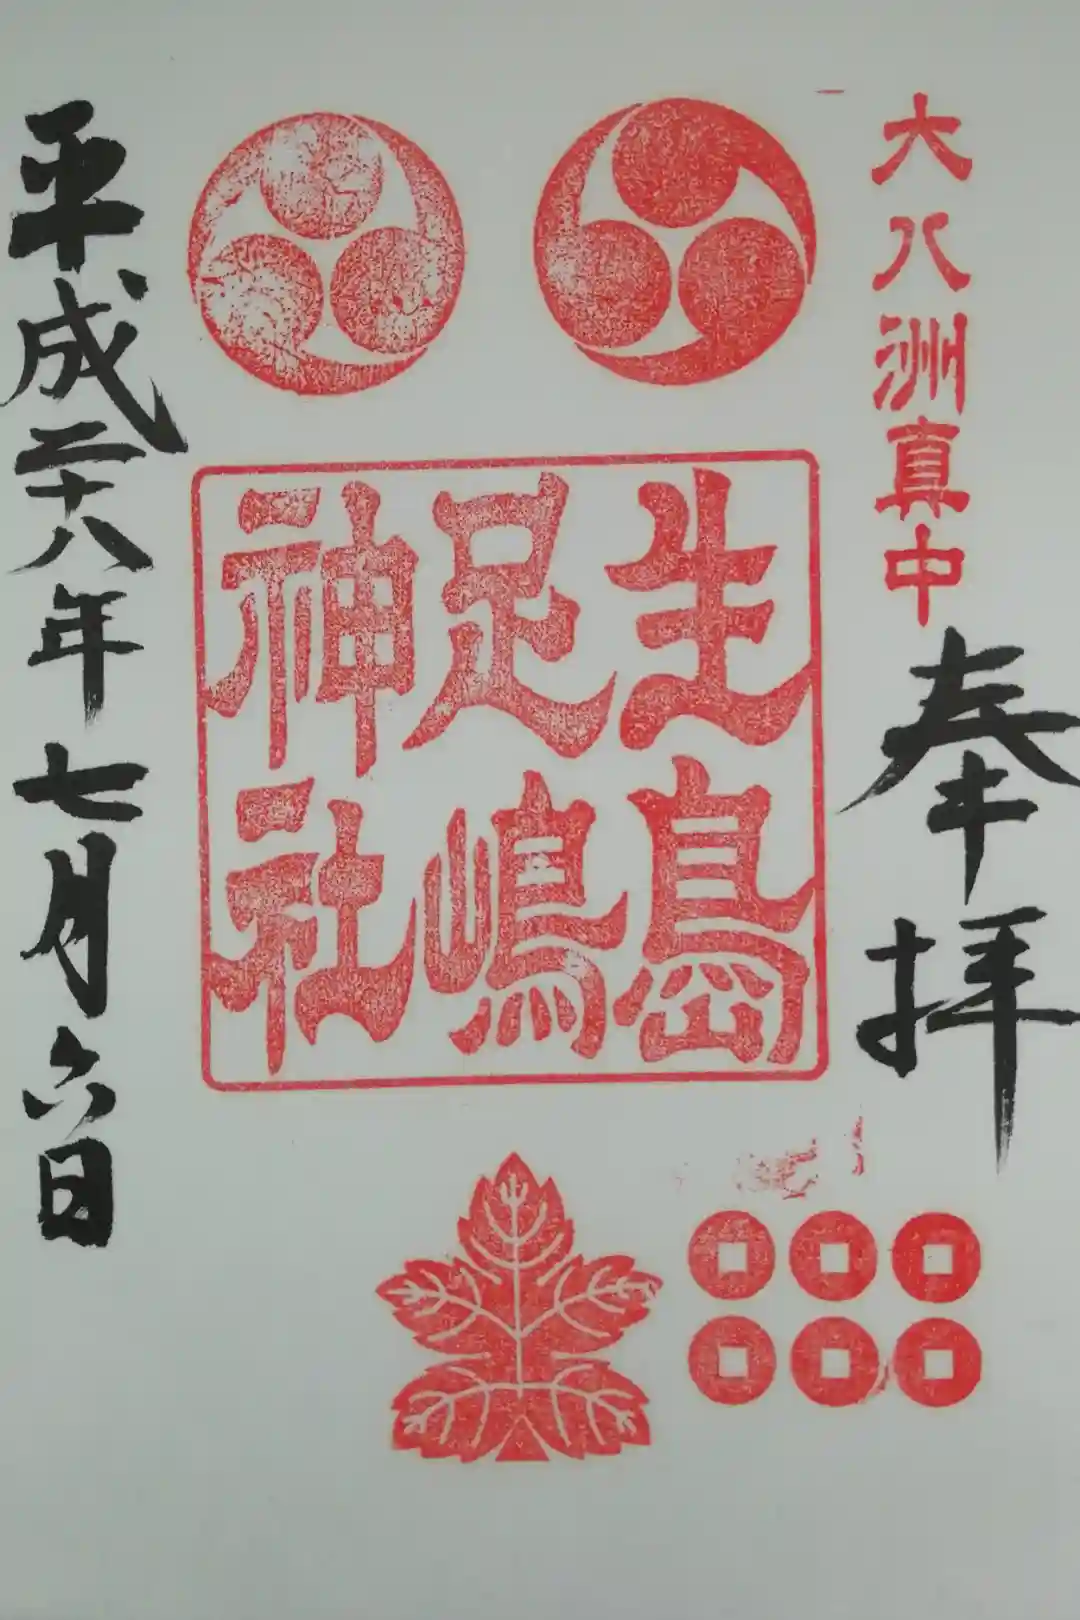 大八洲真中
奉拝
生島
足嶋
神社
平成二十八年七月六日